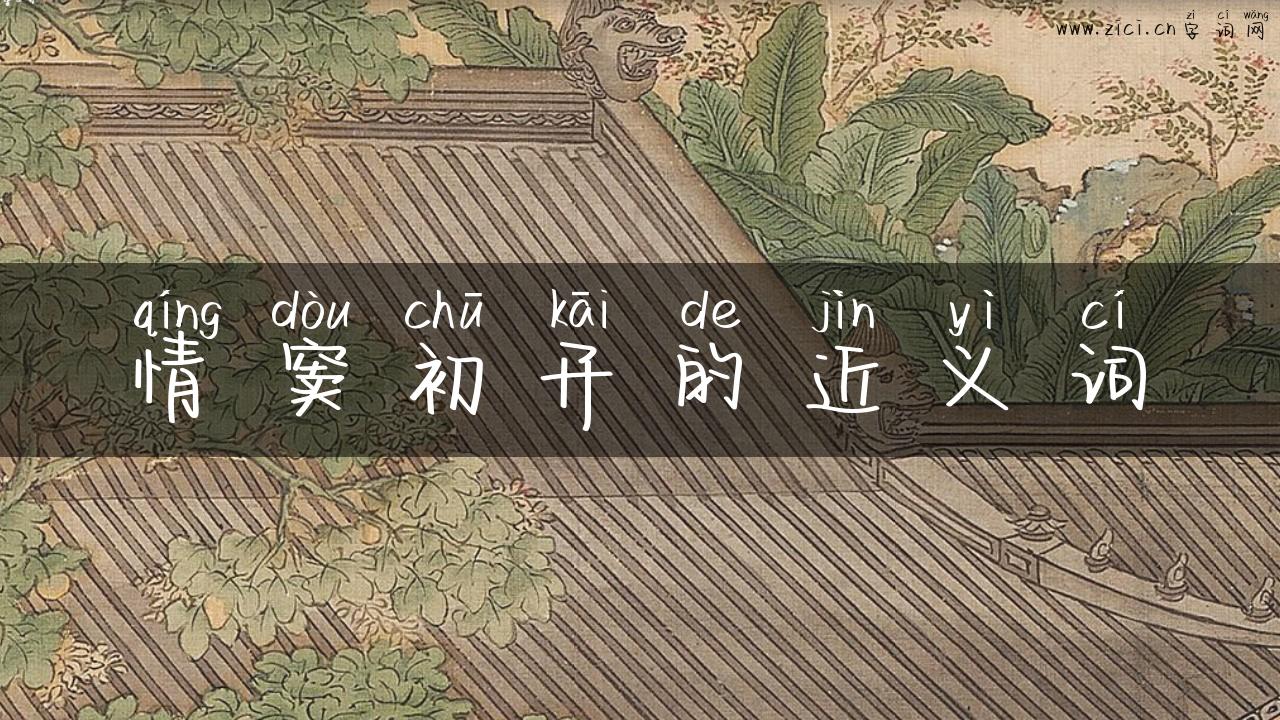 zì cí wǎng
www.zici.cn 字词网
qíng dòu chū kāi de jìn yì cí
情窦初开的近义词